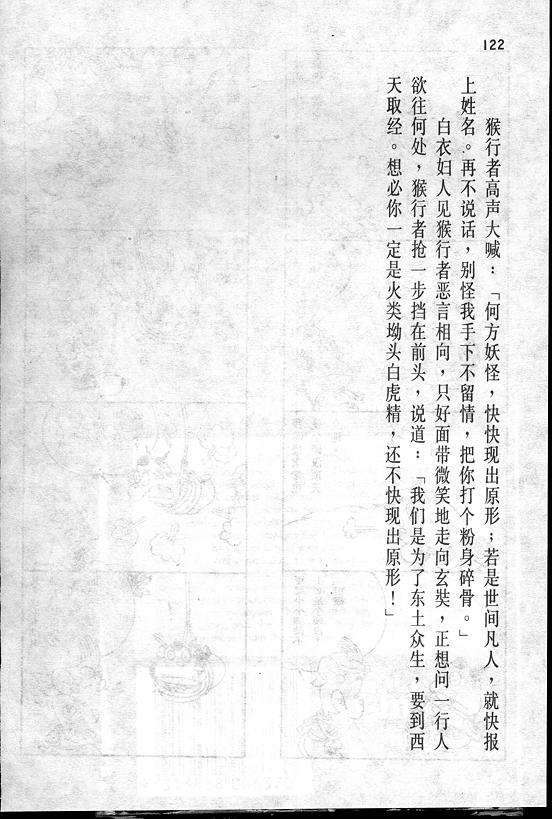 122
猴行者高声大喊：「何方妖怪，快快现出原形；若是世间凡人，就快报
上姓名。再不说话，别怪我手下不留情，把你打个粉身碎骨。」
白衣妇人见猴行者恶言相向，只好面带微笑地走向玄奘，正想问一行人
欲往何处，猴行者抢一步挡在前头，说道：「我们是为了东土众生，要到西
天取经。想必你一定是火类坳头白虎精，还不快现出原形！」